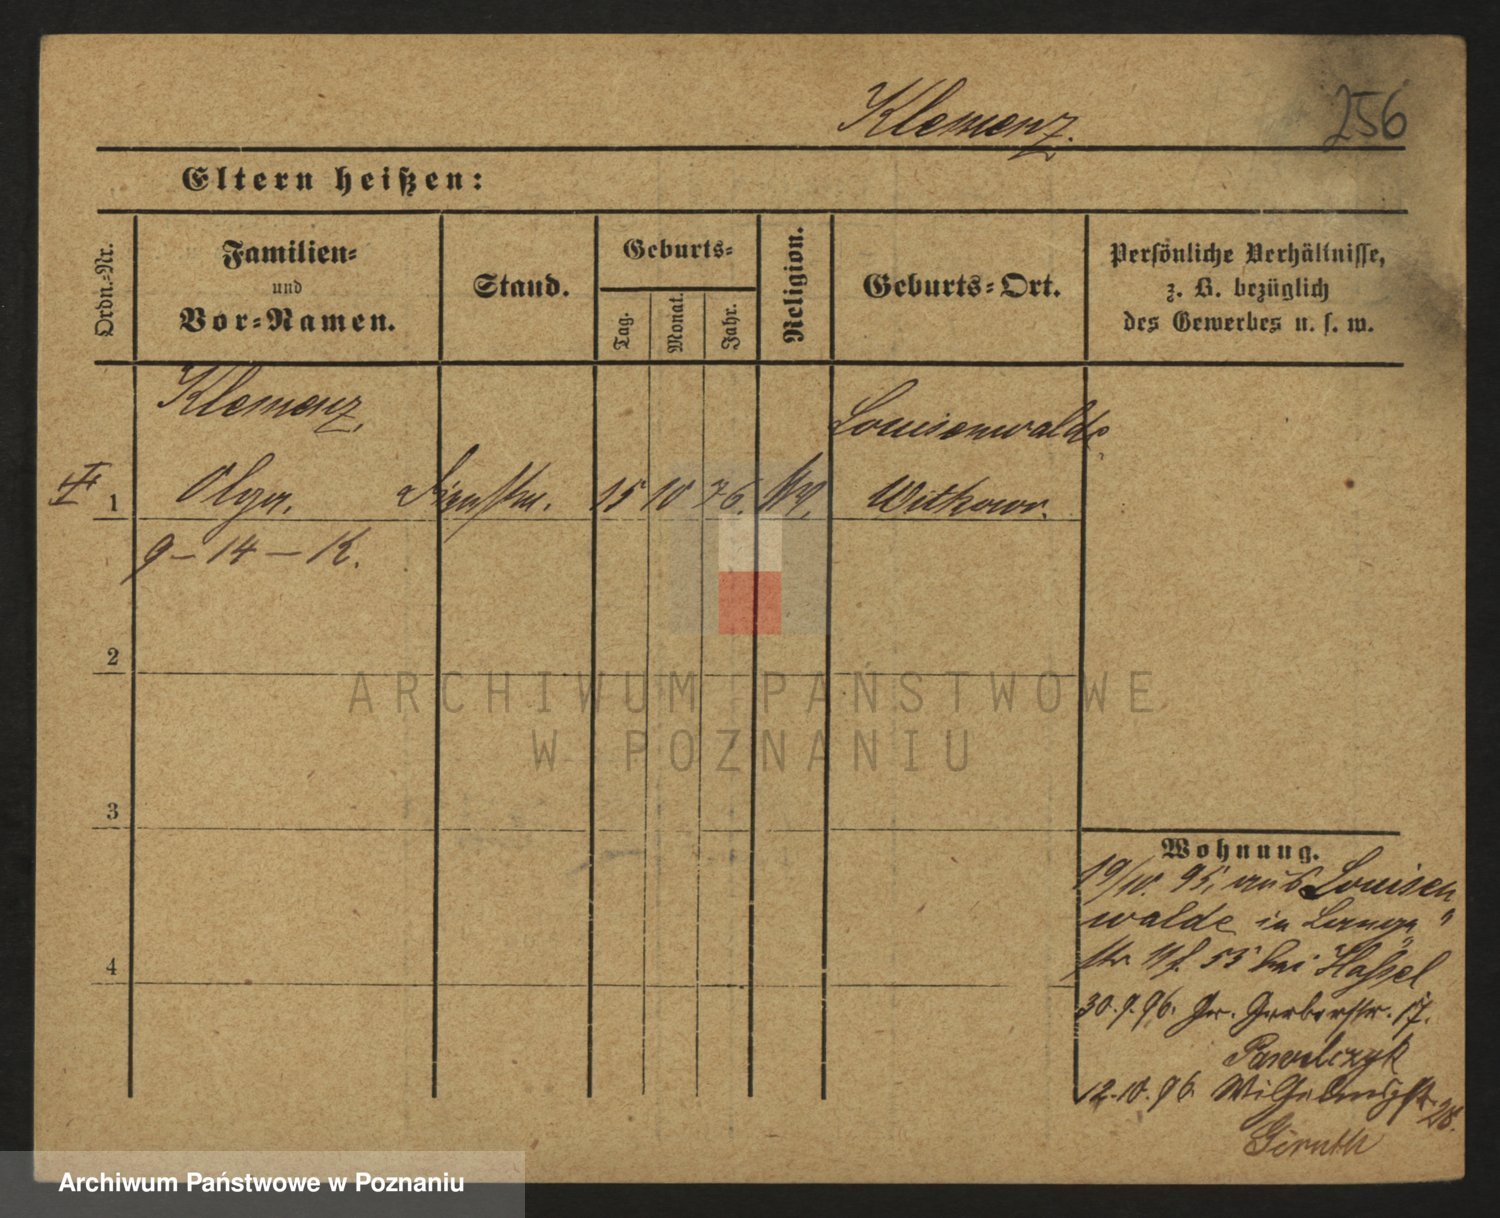 Klemenz.
256
Eltern heißen:
Ordn.-Nr.
Familien-
und
Vor-Namen.
Stand.
Geburts-
Tag.
Monat.
Jahr.
Religion.
Geburts-Ort.
Persönliche Verhältnisse,
z. B. bezüglich
des Gewerbes u. s. w.
Klemenz,
Louisenwalde
1
Olga.
15 10 76.
Witkowo.
9 – 14 – K.
2
ARCHIWUM PAŃSTWOWE
W POZNANIU
3
Wohnung.
19/10. 95, aus Louisen
walde in Lange
str 55 bei Hassel
4
30.9.96. Gr. Gerberstr. 17.
Pawelczyk
12.10.96 Wilhelmsstr. 28.
Archiwum Państwowe w Poznaniu